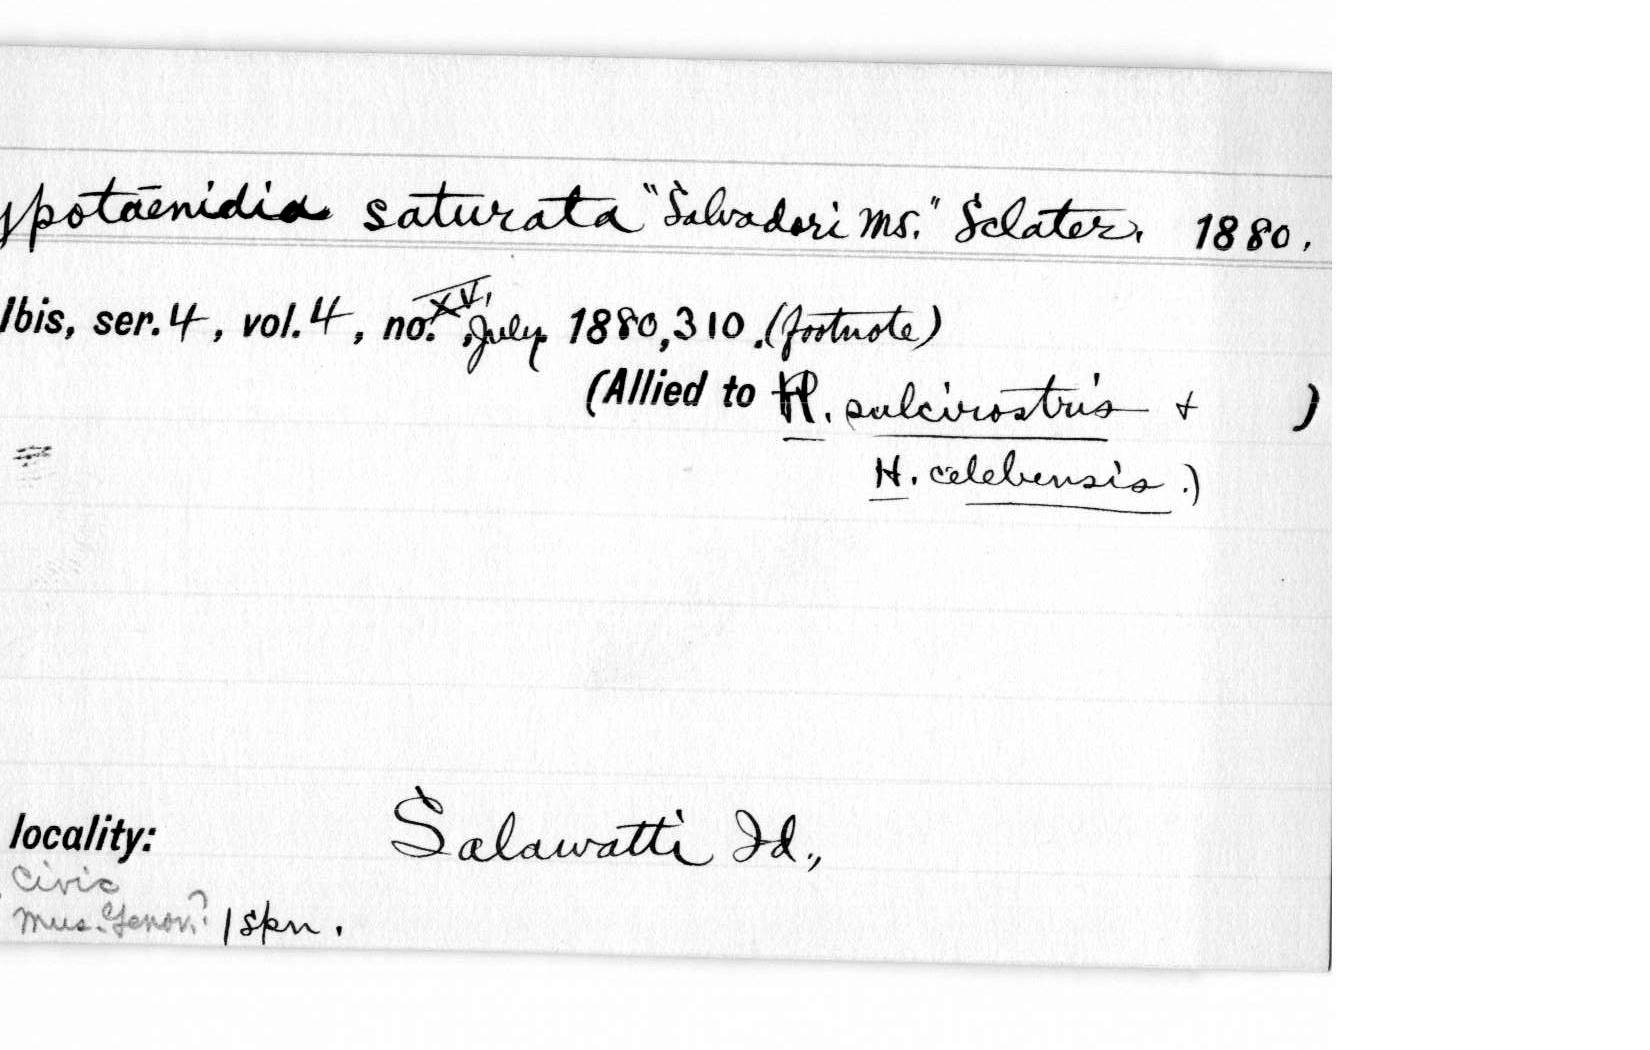 ypotaenidia saturata "Salvadori MS." Sclater. 1880.
Ibis, ser. 4, vol. 4, no. XV, July 1880, 310. (footnote)
(Allied to H. sulcirostris + )
H. celebensis.)
locality: Salawatti Id.,
Civic
Mus. Genov.? 1 spn.